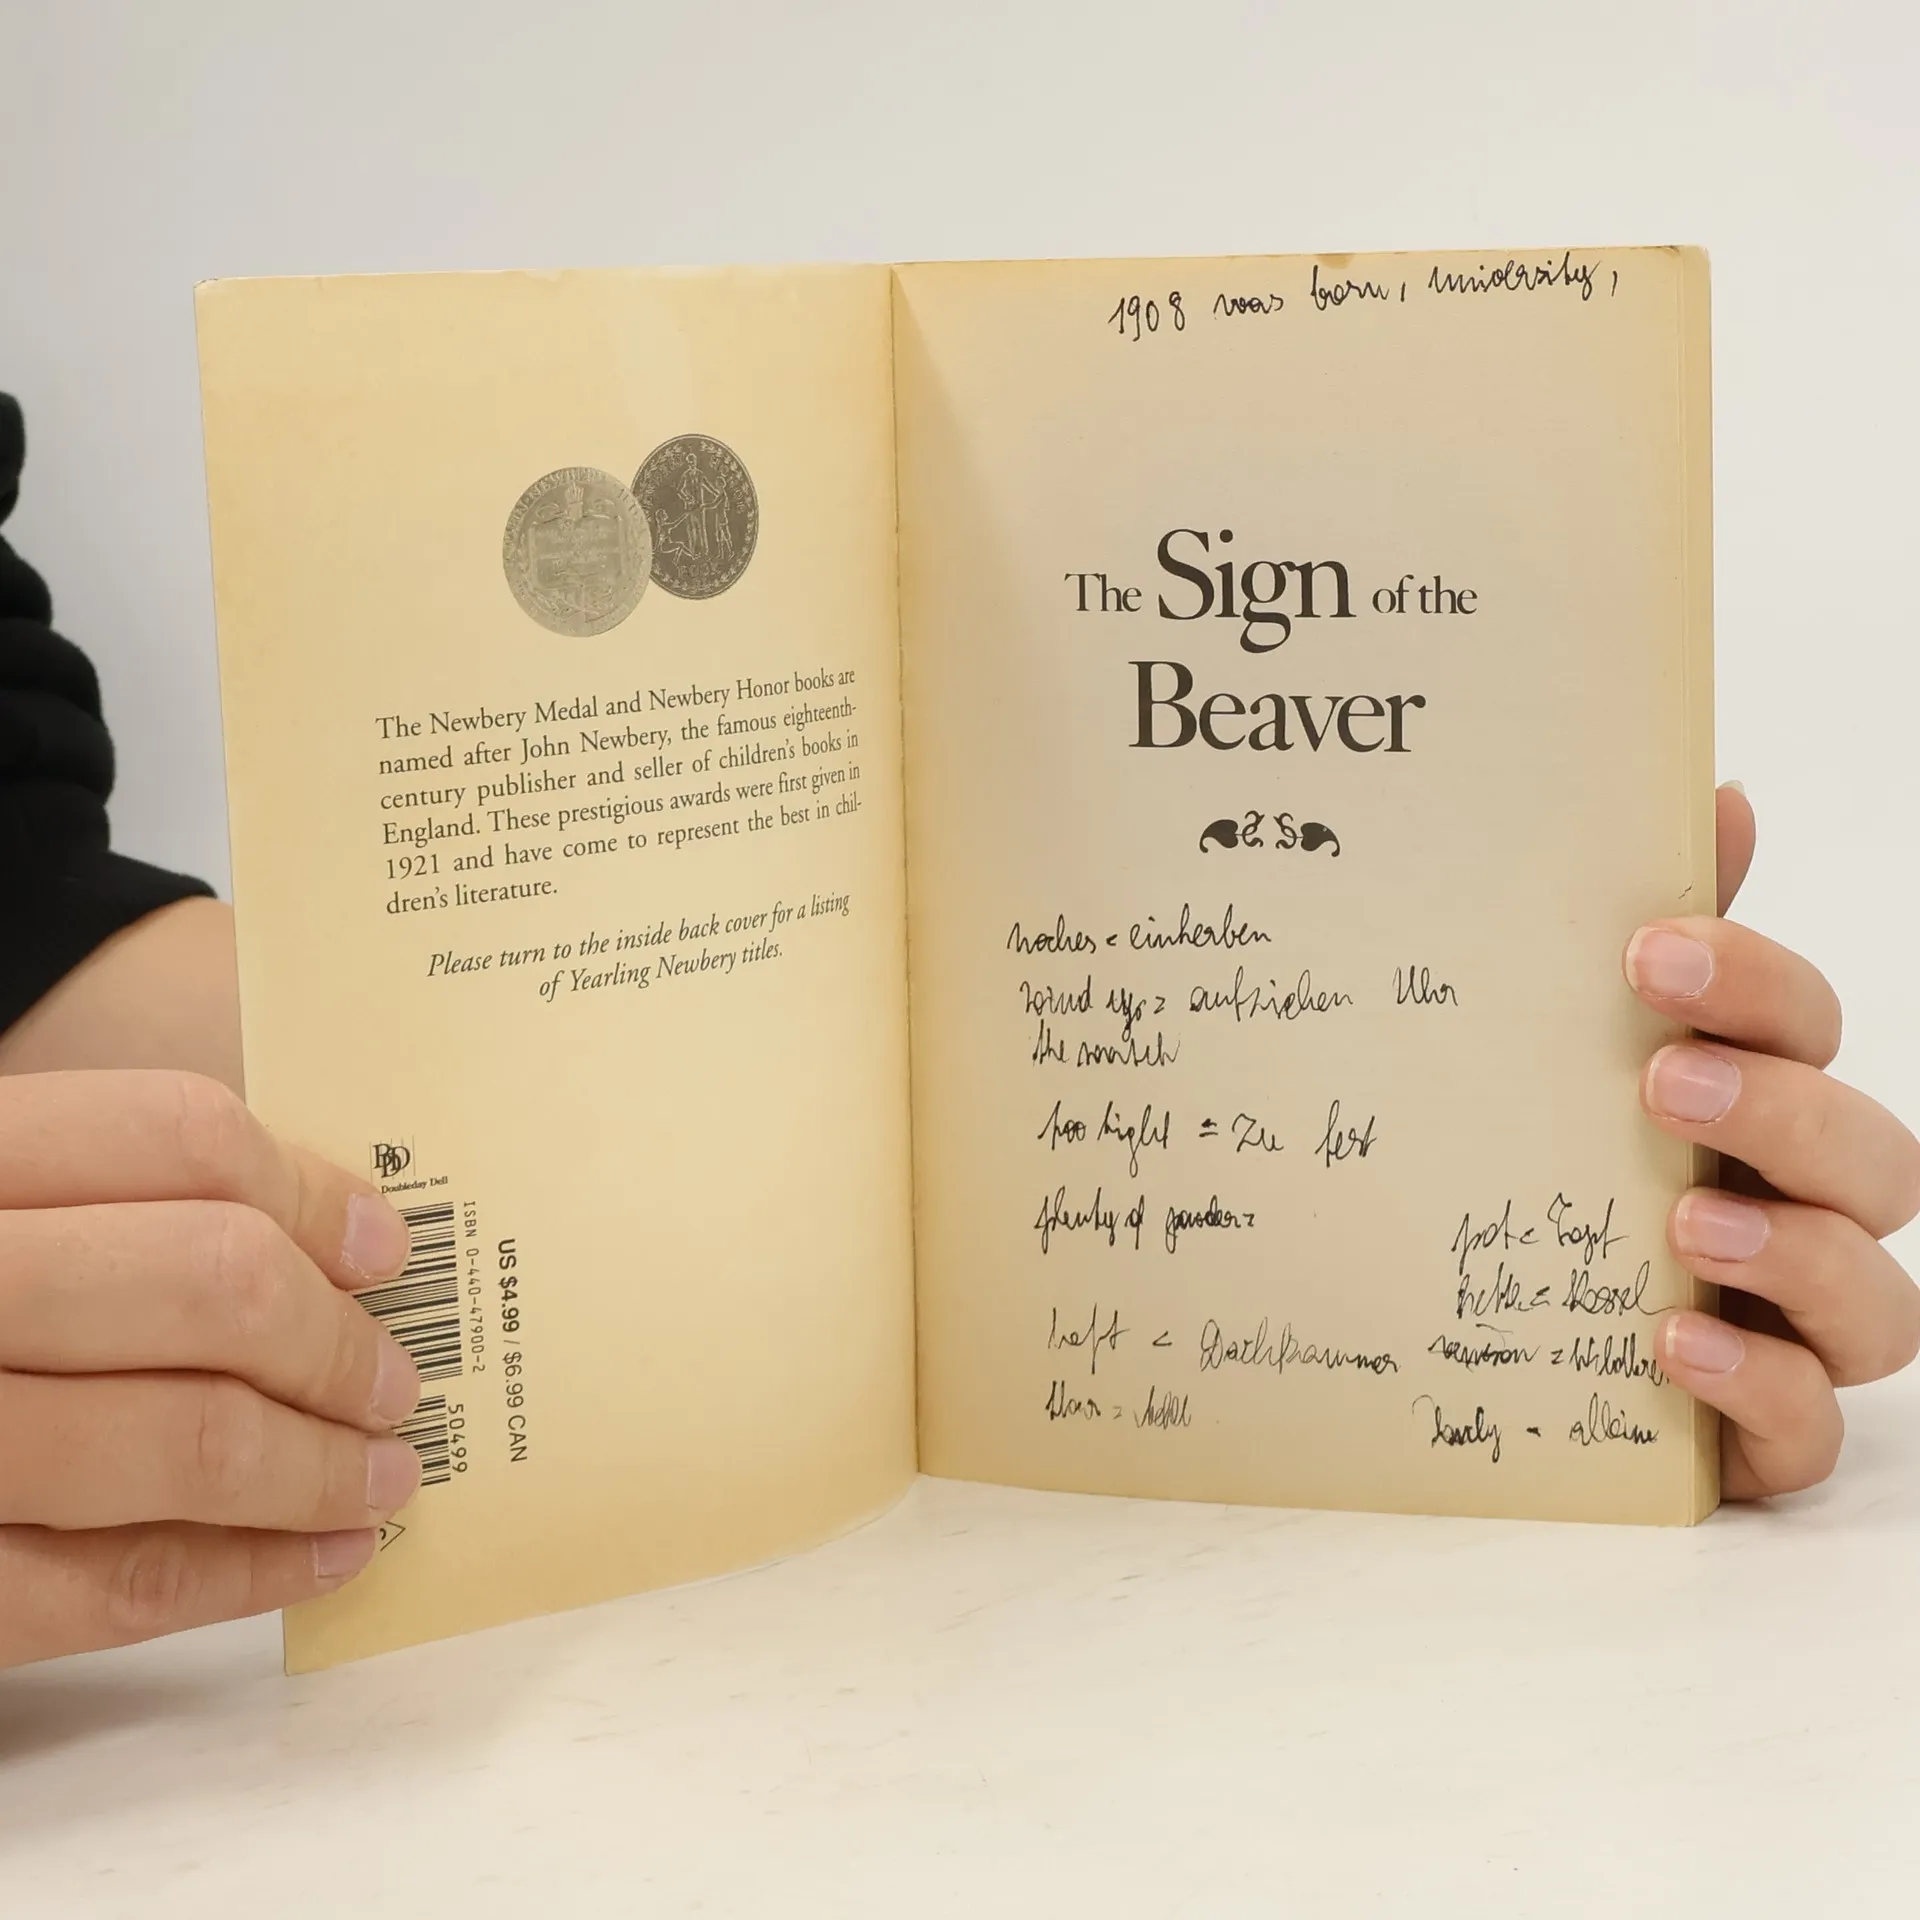 The Newbery Medal and Newbery Honor books are
named after John Newbery, the famous eighteenth-
century publisher and seller of children's books in
England. These prestigious awards were first given in
1921 and have come to represent the best in chil-
dren's literature.
Please turn to the inside back cover for a listing
of Yearling Newbery titles.
BDD
Doubleday Dell
ISBN 0-440-47900-2
50499
US $4.99 / $6.99 CAN
1908 was born, university,
The Sign of the
Beaver
noches = einkerben
wind up = aufziehen Uhr
the watch
too tight = zu fest
plenty of powder =
pot = Topf
kettle = Kessel
loft = Dachkammer
venison = Wildbre
alleine